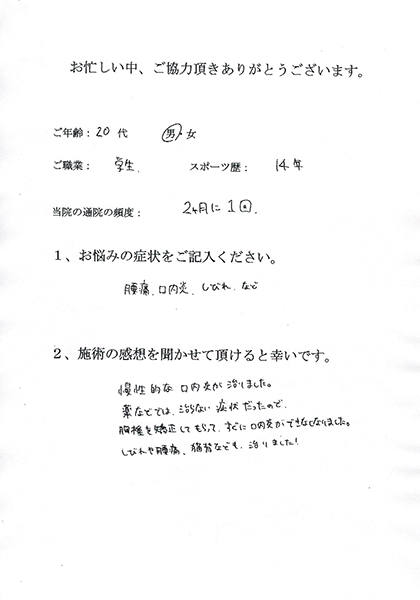 お忙しい中、ご協力頂きありがとうございます。
ご年齢：20代 男・女
ご職業： 学生 スポーツ歴： 14年
当院の通院の頻度： 2ヶ月に1回.
１、お悩みの症状をご記入ください。
腰痛、口内炎、しびれ、など
２、施術の感想を聞かせて頂けると幸いです。
慢性的な口内炎が治りました。
薬などでは、治らない症状だったので、
胸椎を矯正してもらって、すぐに口内炎ができなくなりました。
しびれや腰痛、猫背なども、治りました!